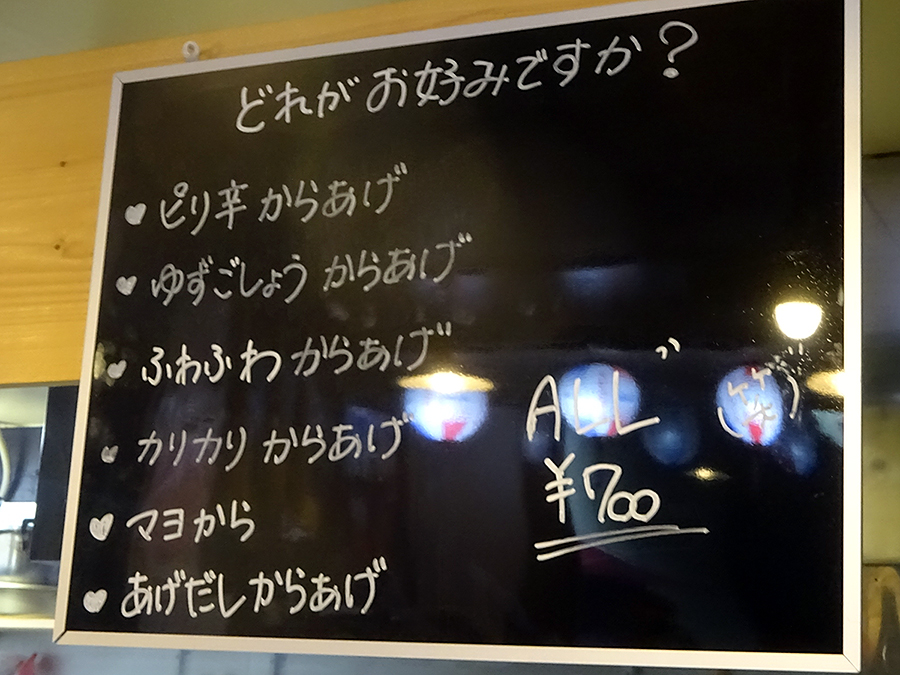 どれがお好みですか?
♥ピリ辛からあげ
♥ゆずごしょうからあげ
♥ふわふわからあげ
♥カリカリからあげ
♥マヨから
♥あげだしからあげ
ALL
¥700